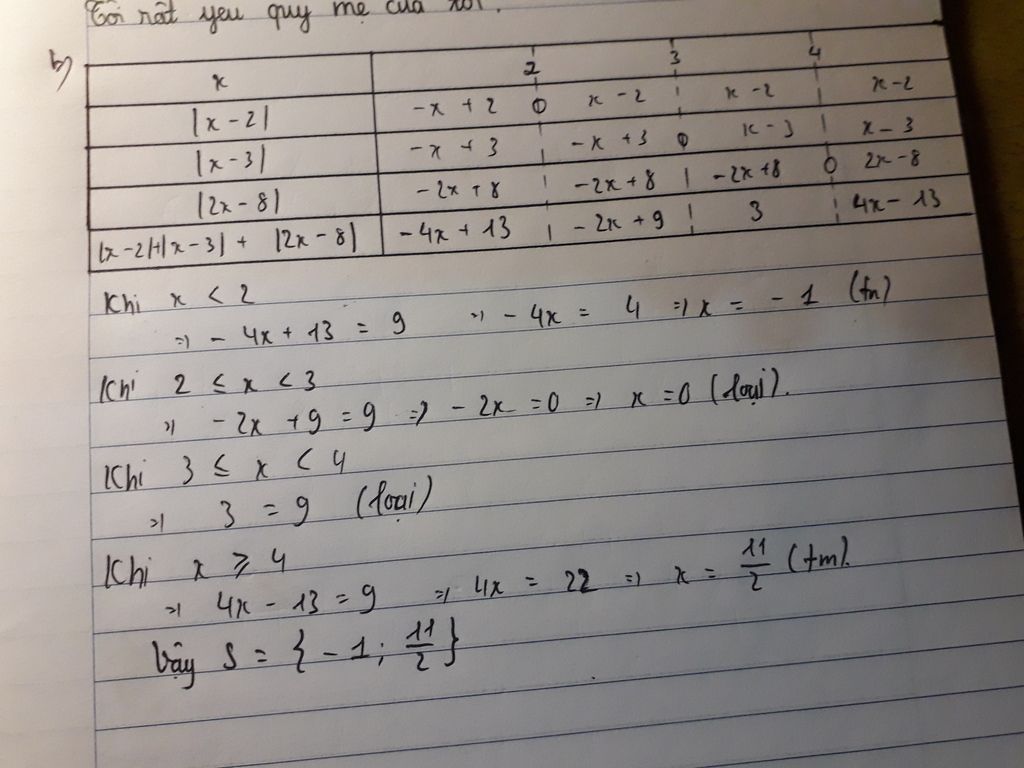 Tôi rất yêu quý mẹ của tôi.
b)
x 2 3 4
|x-2| -x+2 0 x-2 x-2 x-2
|x-3| -x+3 -x+3 0 x-3 x-3
|2x-8| -2x+8 -2x+8 -2x+8 0 2x-8
|x-2|+|x-3|+|2x-8| -4x+13 -2x+9 3 4x-13
Khi x < 2
=> -4x+13 = 9 => -4x = 4 => x = -1 (tm)
Khi 2 ≤ x < 3
=> -2x+9 = 9 => -2x = 0 => x = 0 (loại).
Khi 3 ≤ x < 4
=> 3 = 9 (loại)
Khi x ⩾ 4
=> 4x-13 = 9 => 4x = 22 => x = 11/2 (tm).
Vậy S = {-1; 11/2}